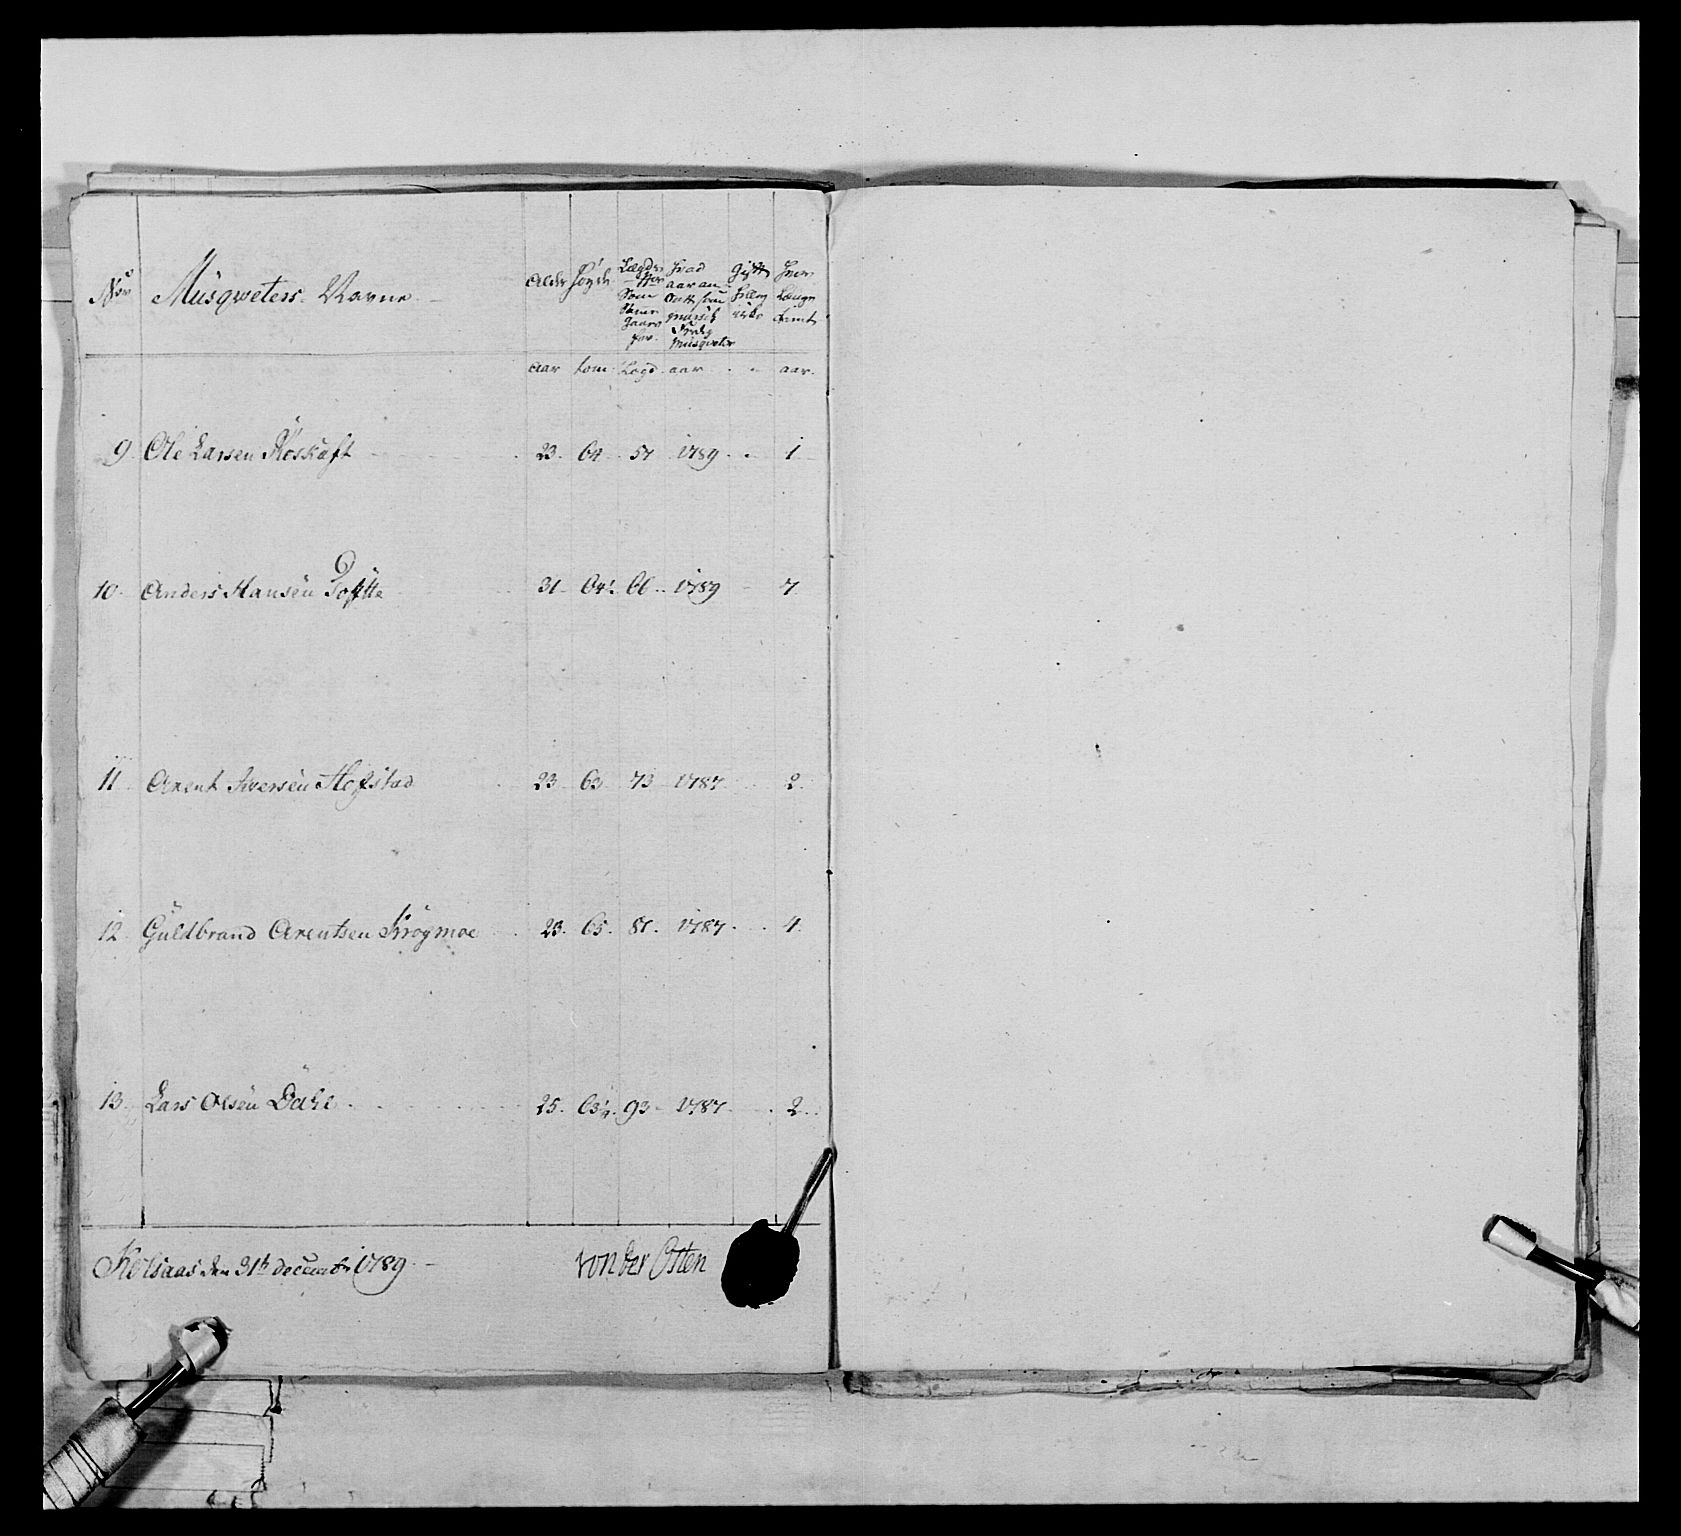 Nor Musqweters Navne Alder høyde Lægds Nor Som Svarer for hvad aar an Satt som Musqveter Gift hvor Længe tient
aar tom Lægd aar aar
9 Ole Larsen Røskaft 23 64 57 1789 1
10 Anders Hansen Tofte 31 64 1/2 66 1789 7
11 Arent Iversen Hofstad 23 63 73 1787 2
12 Guldbrand Arentsen Krogmoe 23 65 81 1787 4
13 Lars Olsen Dahl 25 63 1/4 93 1787 2
Kolsaas den 31te decembr 1789 von der Osten